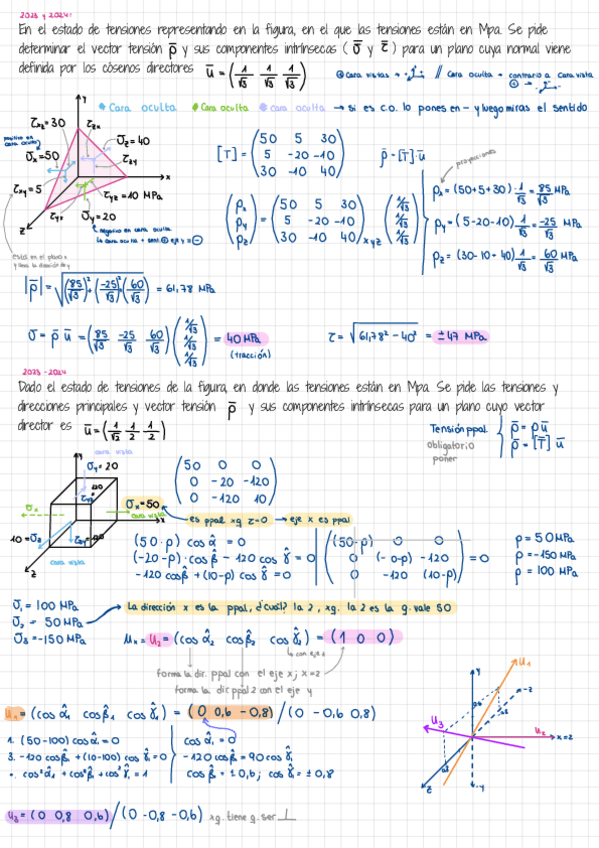 2023 y 2024:
En el estado de tensiones representando en la figura, en el que las tensiones están en Mpa. Se pide
determinar el vector tensión p̄ y sus componentes intrínsecas ( σ̄ y τ̄ ) para un plano cuya normal viene
definida por los cosenos directores ū = (1/√3 1/√3 1/√3)
cara vistas → // Cara oculta = contrario a cara vista
Cara oculta Cara oculta cara oculta → si es c.o. lo pones en - y luego miras el sentido
τxz = 30 τzx
positivo en cara oculta
σz = 40
σx = 50 τzy
τxy = 5 τyz = 10 MPa
τyx σy = 20
Y x z
negativo en cara oculta
la cara oculta + sent eje y = ⊖
está en el plano x y tiene la dirección de y
[T] = (50 5 30 / 5 -20 -10 / 30 -10 40) p̄ = [T]·ū
proyecciones
(px / py / pz) = (50 5 30 / 5 -20 -10 / 30 -10 40)xyz (1/√3 / 1/√3 / 1/√3)
px = (50+5+30)·1/√3 = 85/√3 MPa
py = (5-20-10) 1/√3 = -25/√3 MPa
pz = (30-10+40) 1/√3 = 60/√3 MPa
|p̄| = √((85/√3)² + (-25/√3)² + (60/√3)²) = 61,78 MPa
σ = p̄ ū = (85/√3 -25/√3 60/√3) (1/√3 / 1/√3 / 1/√3) = 40 MPa
(tracción)
τ = √(61,78² - 40²) = ±47 MPa
2023 - 2024
Dado el estado de tensiones de la figura, en donde las tensiones están en Mpa. Se pide las tensiones y
direcciones principales y vector tensión p̄ y sus componentes intrínsecas para un plano cuyo vector
director es ū = (1/√2 1/2 1/2)
Tensión ppal. { p̄ = p ū
p̄ = [T] ū
obligatorio
poner
cara vista
Y σy = 20
σx = 50
σx cara vista
10 = σz
cara vista
x z
(50 0 0 / 0 -20 -120 / 0 -120 10)
es ppal xq τ=0 → eje x es ppal
(50-p) cos α̂ = 0
(-20-p)·cos β̂ - 120 cos γ̂ = 0
-120 cos β̂ + (10-p) cos γ̂ = 0
|(50-p) 0 0 / 0 (-20-p) -120 / 0 -120 (10-p)| = 0
p = 50 MPa
p = -150 MPa
p = 100 MPa
σ1 = 100 MPa
σ2 = 50 MPa
σ3 = -150 MPa
La dirección x es la ppal, ¿cuál? la 2, xq. la 2 es la q. vale 50
ux = u2 = (cos α̂2 cos β̂2 cos γ̂2) = (1 0 0)
con eje z
forma la dir. ppal con el eje x; x=2
forma la dir ppal 2 con el eje y
u1 = (cos α̂1 cos β̂1 cos γ̂1) = (0 0,6 -0,8) / (0 -0,6 0,8)
1. (50-100) cos α̂ = 0
3. -120 cos β̂ + (10-100) cos γ̂ = 0
cos² α̂ + cos² β̂ + cos² γ̂ = 1
cos α̂1 = 0
-120 cos β̂ = 90 cos γ̂
cos β̂ = ±0,6; cos γ̂ = ±0,8
u3 = (0 0,8 0,6) / (0 -0,8 -0,6) xq. tiene q. ser ⊥
Y u1 -z u3 u2 x=2 z -y